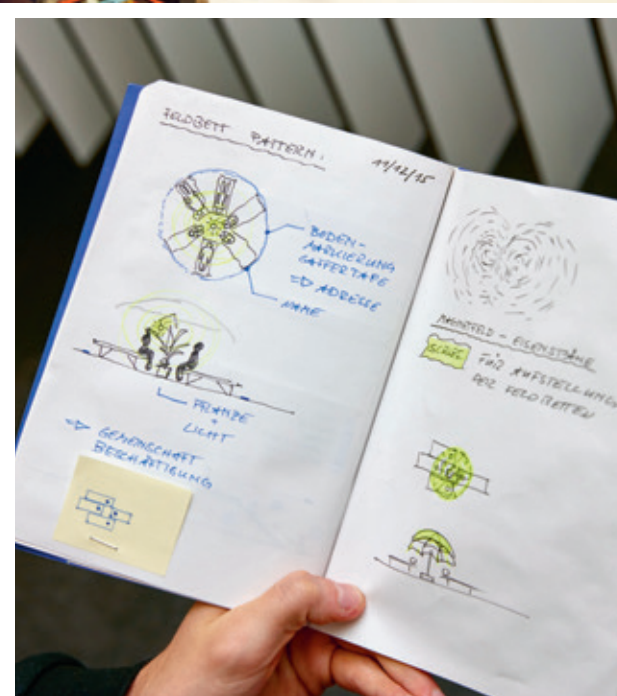 FELDBETT PATTERN:
11/12/15
BODEN-
MARKIERUNG
GAFFERTAPE
⇒ ADRESSE
NAME
PFLANZE
+
LICHT
⇒ GEMEINSCHAFT
BESCHÄFTIGUNG
MAGNETFELD - EISENSPÄNE
FÜR AUFSTELLUNG
DER FELDBETTEN